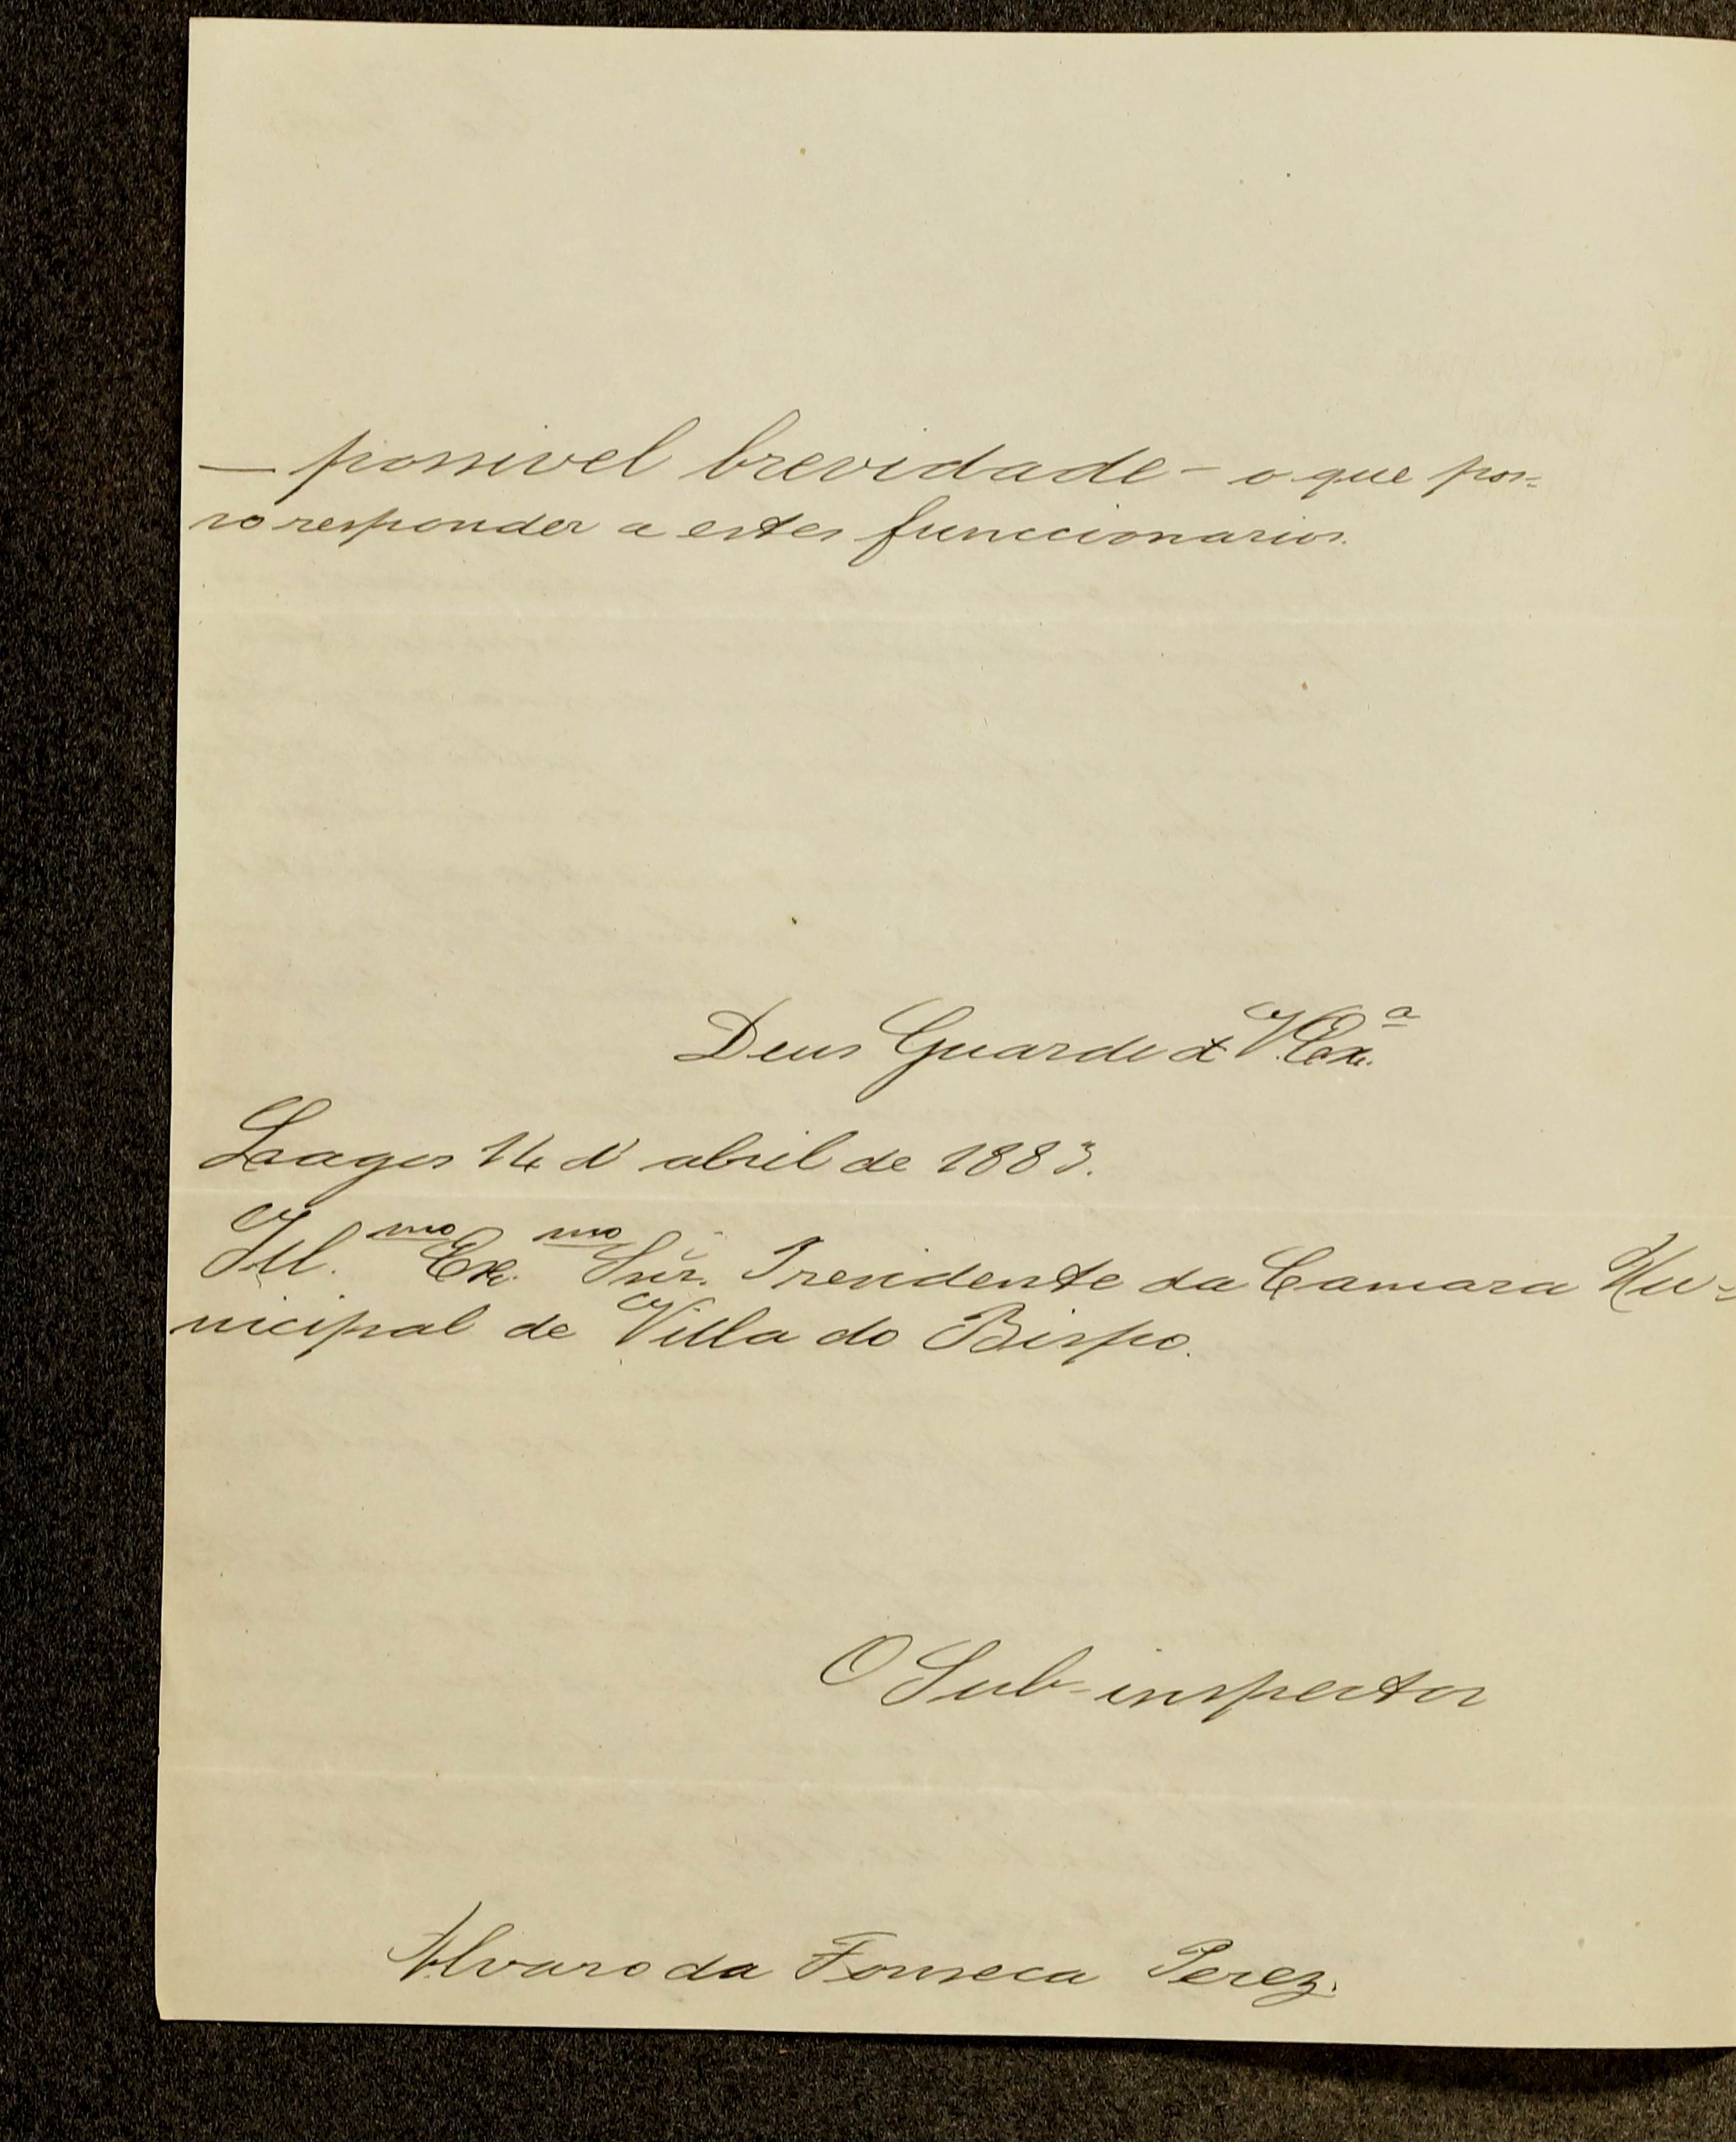 — possivel brevidade - o que pos-
so responder a estes funccionarios.
Deus Guarde a V. Ex.ª
Lagos 14 d' abril de 1883.
Ill.mo Ex.mo Snr. Presidente da Camara Mu-
nicipal de Villa do Bispo.
O Sub-inspector
Alvaro da Fonseca Perez.